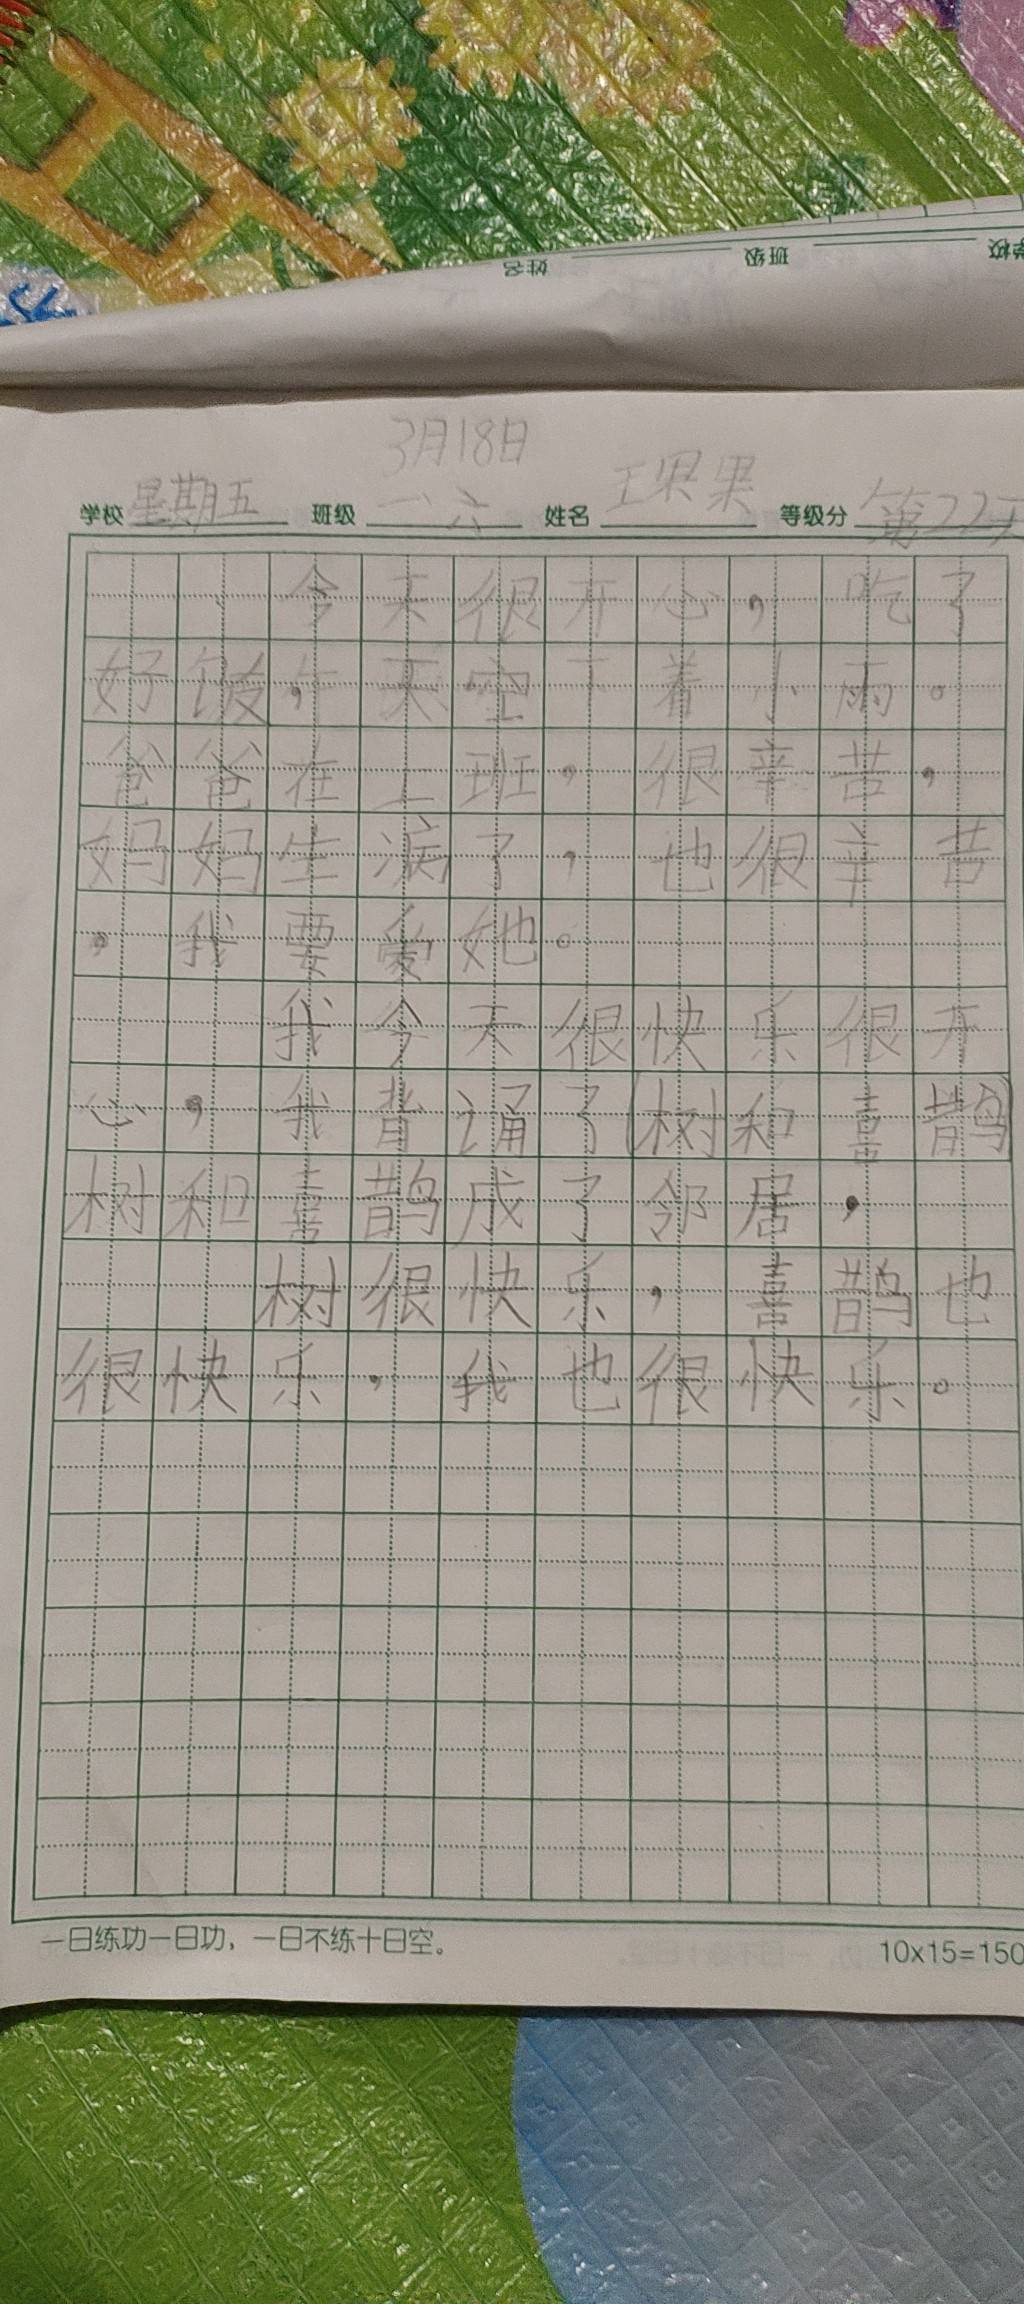 学校 班级 姓名
3月18日
学校 星期五 班级 一、六 姓名 王果果 等级分 第22天
今天很开心，吃了
好饭，天空下着小雨。
爸爸在上班，很辛苦，
妈妈生病了，也很辛苦
，我要爱她。
我今天很快乐很开
心，我背诵了(树和喜鹊)
树和喜鹊成了邻居，
树很快乐，喜鹊也
很快乐，我也很快乐。
一日练功一日功，一日不练十日空。
10x15=150